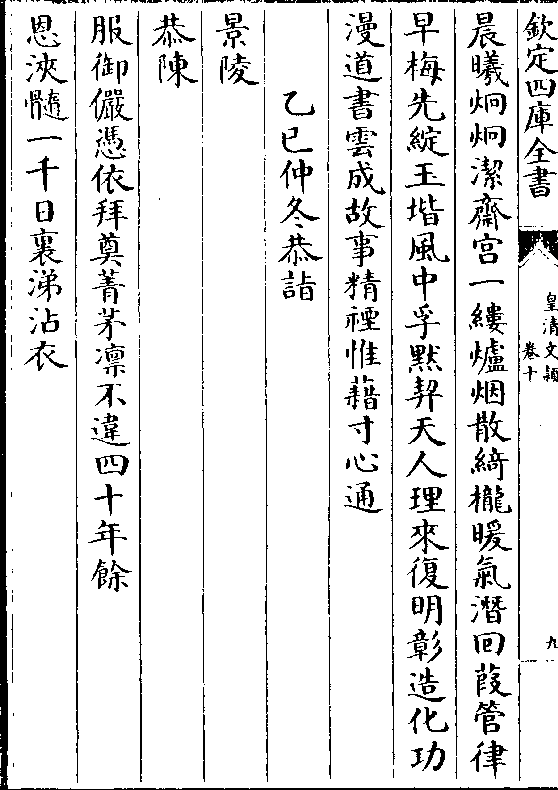 欽定四庫全書
皇清文穎
卷十
九
晨曦炯炯潔齋宫一縷爐烟散綺櫳暖氣潛回葭管律
早梅先綻玉堦風中孚默契天人理來復明彰造化功
漫道書雲成故事精禋惟藉寸心通
乙巳仲冬恭詣
景陵
恭陳
服御儼憑依拜奠菁茅凛不違四十年餘
恩浹髓一千日裏涕沾衣